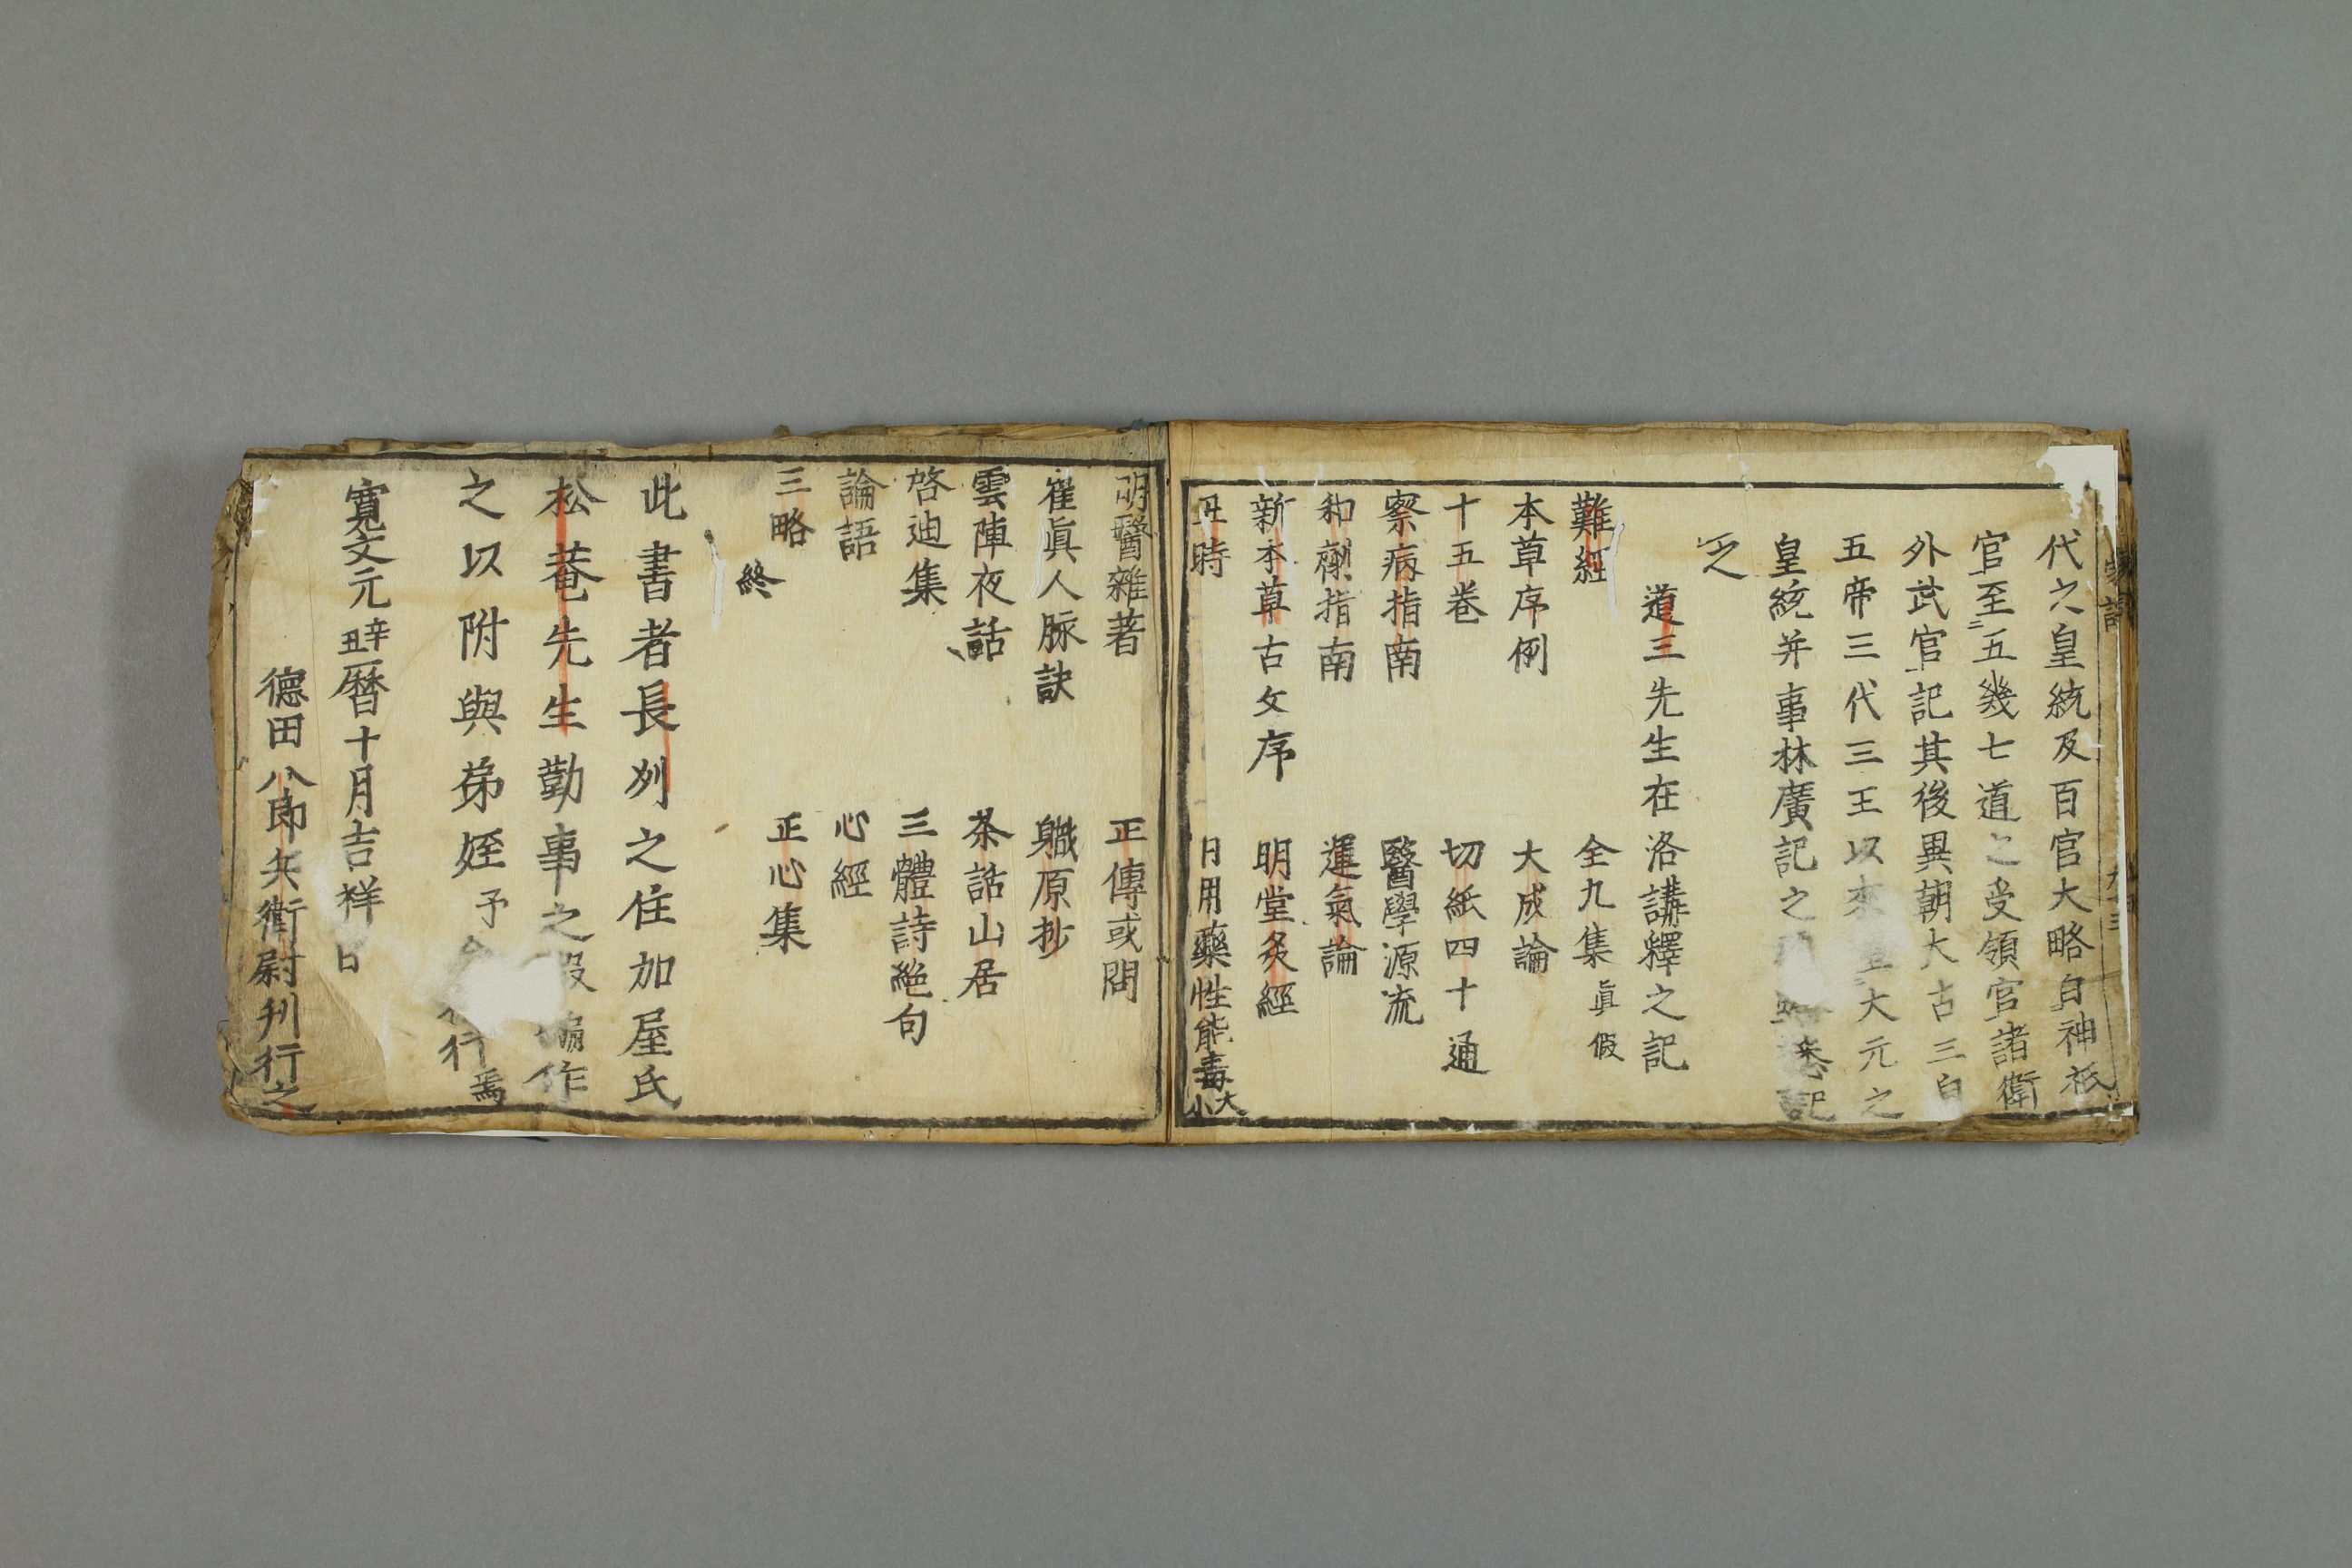 代六皇統及百官大略自神祇
官至五幾七道之受領官諸衛
外武官記其後異朝大古三白
五帝三代三王以來 大元之
皇統并事林廣記之 巻記
之
道三先生在洛講釋之記
難經 全九集眞假
本草序例 大成論
十五巻 切紙四十通
察病指南 醫學源流
和劑指南 運氣論
新本草古文序 明堂灸經
丑時 日用藥性能毒大小
明醫雜著 正傳或問
崔眞人脉訣 職原抄
雲陣夜話 茶話山居
啓迪集 三體詩絶句
論語 心經
三略 正心集
終
此書者長列之住加屋氏
松菴先生勤事之 編作
之以附與弟姪予 行焉
寛文元辛丑曆十月吉祥日
德田八郎兵衛尉刋行之